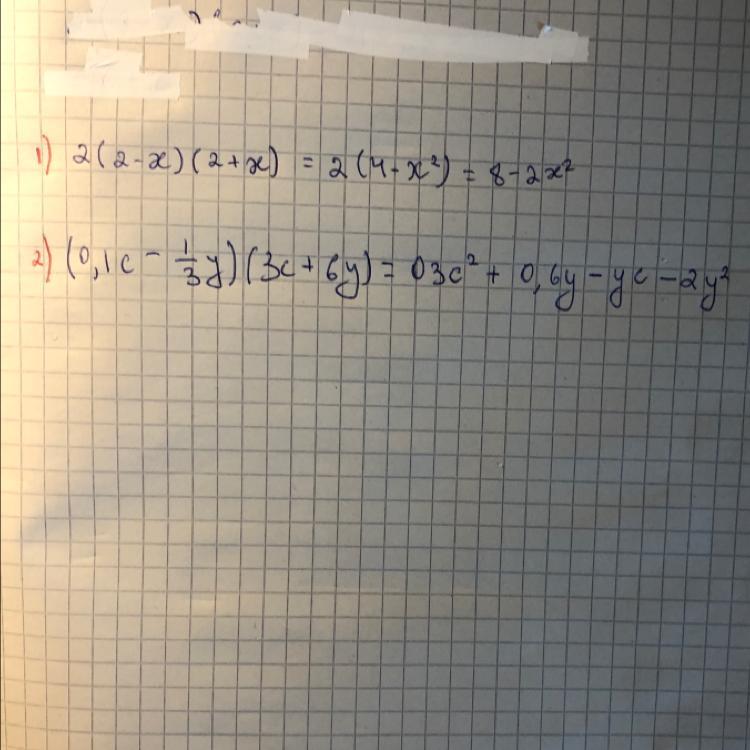 1) 2(2-x)(2+x) = 2(4-x²) = 8-2x²
2) (0,1c - 1/3y)(3c+6y) = 03c² + 0,6y - yc - 2y²